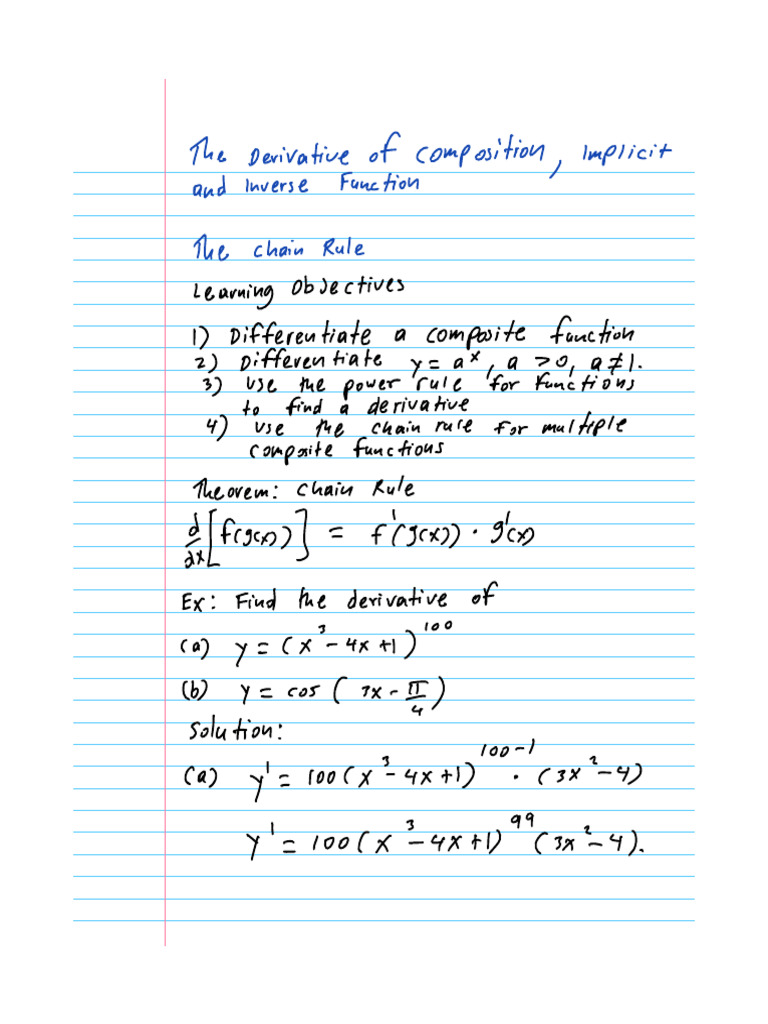 The Derivative of Composition, Implicit
and Inverse Function
The Chain Rule
Learning Objectives
1) Differentiate a composite function
2) Differentiate y = a^x, a > 0, a ≠ 1.
3) Use the power rule for functions
to find a derivative
4) Use the chain rule for multiple
composite functions
Theorem: Chain Rule
d/dx [f(g(x))] = f'(g(x)) · g'(x)
Ex: Find the derivative of
(a) y = (x^3 - 4x + 1)^100
(b) y = cos (3x - π/4)
Solution:
(a) y' = 100(x^3 - 4x + 1)^(100-1) · (3x^2 - 4)
y' = 100(x^3 - 4x + 1)^99 (3x^2 - 4).